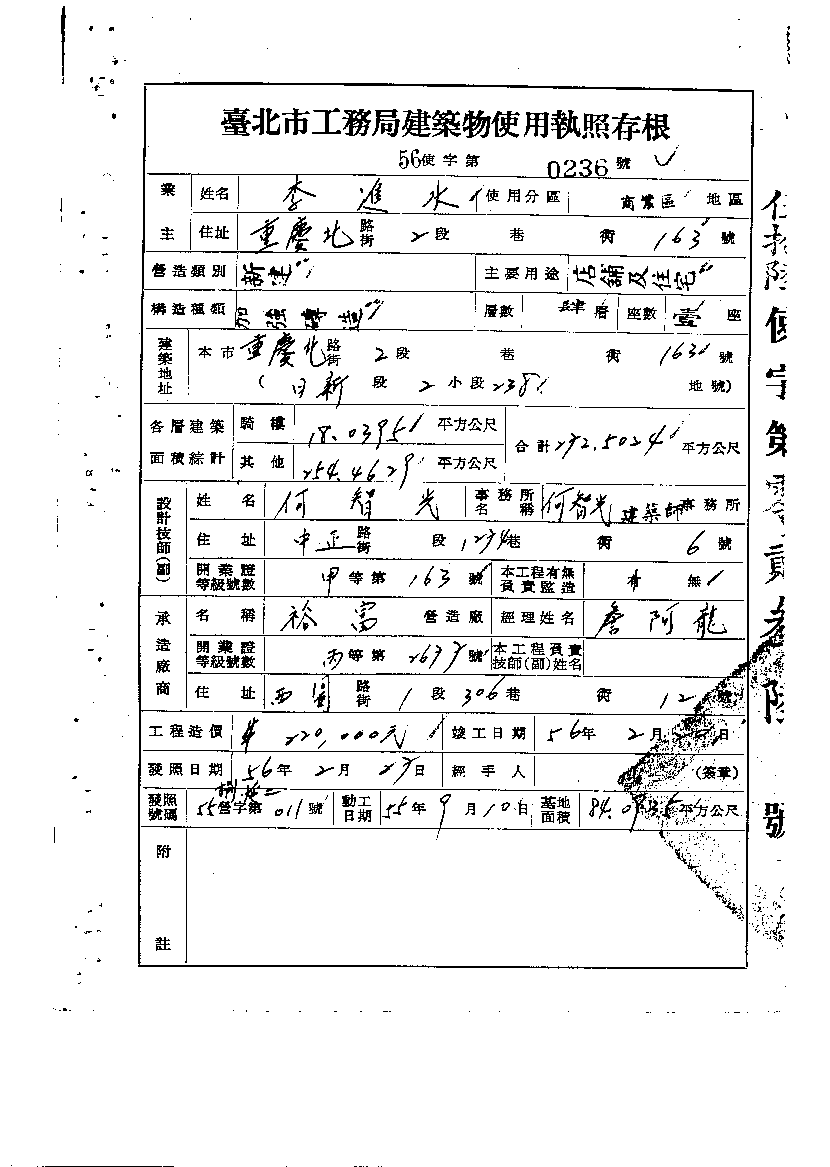 臺北市工務局建築物使用執照存根
56使字第 0236 號
業主 姓名 李進水 使用分區 商業區 地區
住址 重慶北 路街 2段 巷 街 163 號
營造類別 新建 主要用途 店舖及住宅
構造種類 加強磚造 層數 層 座數 壹 座
建築地址 本市 重慶北 路街 2段 巷 街 163 號
(日新 段 2 小段 238 地號)
各層建築面積綜計 騎樓 18.0395 平方公尺 合計 272.5024 平方公尺
其他 254.4629 平方公尺
設計技師(副) 姓名 何智光 事務所名稱 何智光建築師事務所
住址 中正 路街 段 1234巷 街 6 號
開業證等級號數 甲等第 163 號 本工程有無負責監造 有 無
承造廠商 名稱 裕富 營造廠 經理姓名 詹阿龍
開業證等級號數 丙等第 號 本工程負責技師(副)姓名
住址 西園 路街 1段 306巷 街 12 號
工程造價 220,000元 竣工日期 56年 2月 日
發照日期 56年 2月 27日 經手人 (簽章)
發照號碼 55營字第 011號 動工日期 55年 9月 10日 基地面積 平方公尺
附註
伍拾陸使字第零貳叁陸號